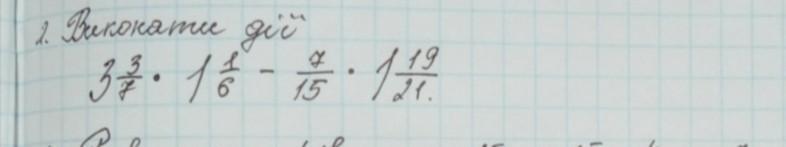 2. Виконати дії
3 3/7 · 1 1/6 - 7/15 · 1 19/21.